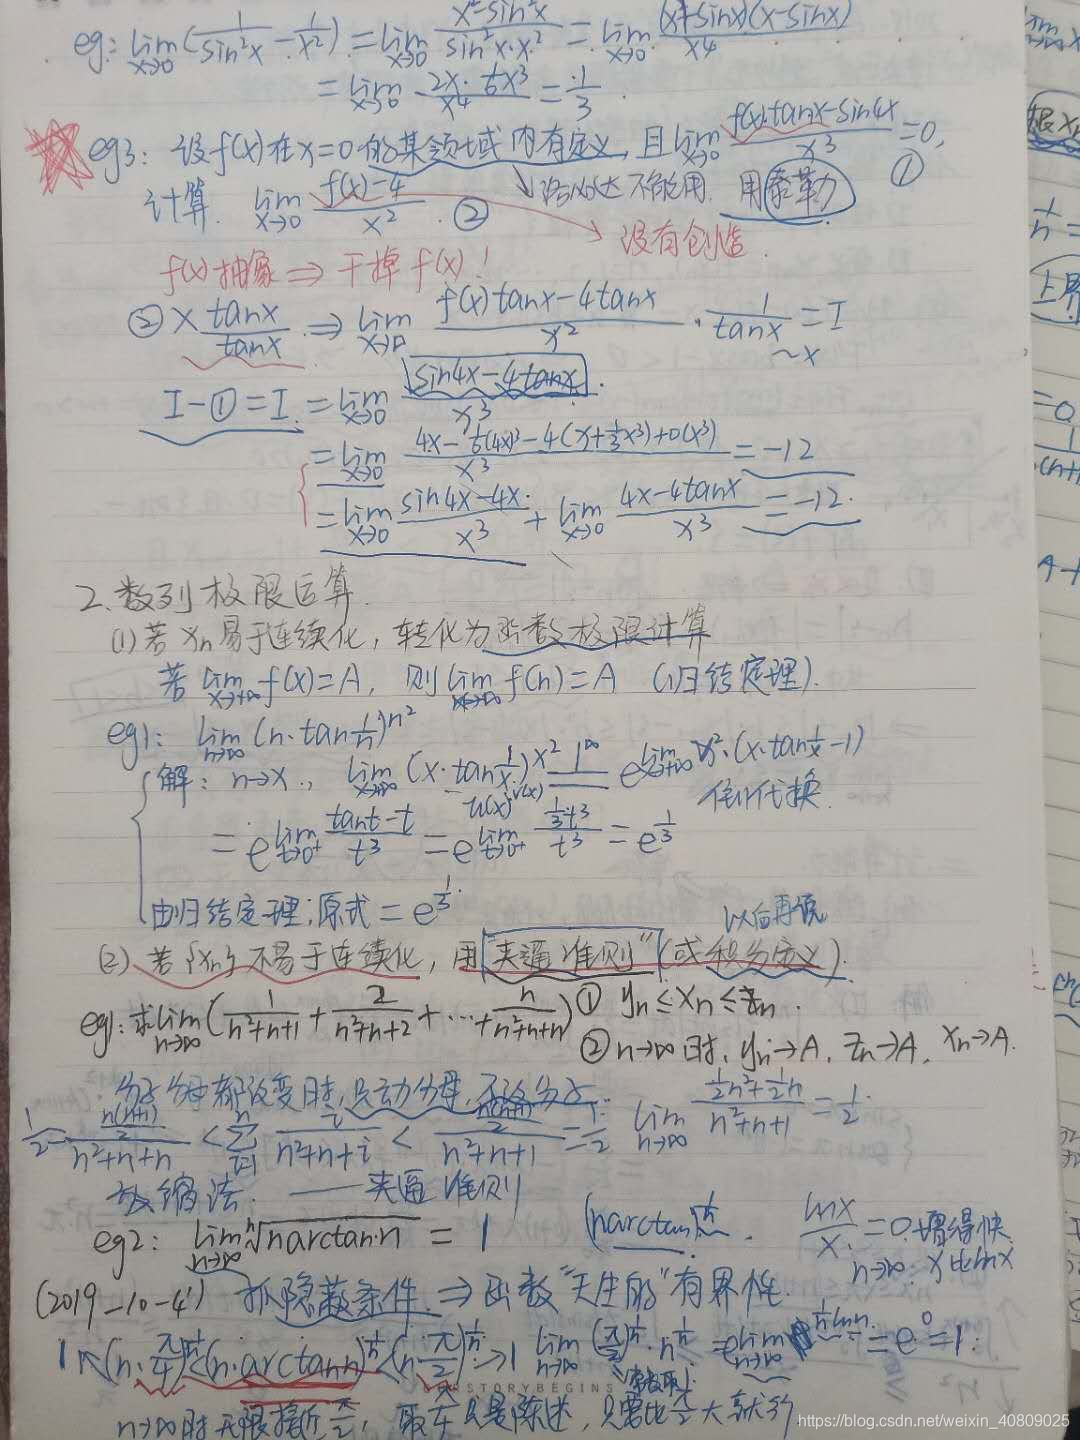 eg: lim x→0 (1/sin²x - 1/x²) = lim x→0 (x²-sin²x)/(sin²x·x²) = lim x→0 (x+sinx)(x-sinx)/x4
= lim x→0 2x·1/6x³/x4 = 1/3.
eg3: 设f(x)在x=0的某领域内有定义, 且lim x→0 (f(x)tanx-sin4x)/x³ = 0, ①
计算. lim x→0 (f(x)-4)/x². ② 洛必达不能用. 用泰勒
没有创造.
f(x)抽象 ⇒ 干掉f(x)!
② × tanx/tanx ⇒ lim x→0 (f(x)tanx-4tanx)/x² · 1/tanx = I
~x
I-①=I. = lim x→0 (sin4x-4tanx)/x³.
= lim x→0 (4x-1/6(4x)³-4(x+1/3x³)+o(x³))/x³ = -12
= lim x→0 (sin4x-4x)/x³ + lim x→0 (4x-4tanx)/x³ = -12.
2. 数列极限运算.
(1) 若xn易于连续化, 转化为函数极限计算
若 lim x→+∞ f(x)=A, 则 lim f(n)=A (归结定理).
eg1: lim n→∞ (n·tan1/n)n²
解: n→x., lim x→+∞ (x·tan1/x)x² 1∞ e lim x→+∞ x²·(x·tan1/x-1)
u(x)v(x) 倒代换.
= e lim t→0+ (tant-t)/t³ = e lim t→0+ 1/3t³/t³ = e1/3
由归结定理: 原式 = e1/3.
以后再说
(2) 若{xn}不易于连续化, 用"夹逼准则"(或积分定义).
eg1: 求lim n→∞ (1/n²+n+1 + 2/n²+n+2 + ... + n/n²+n+n) ① yn≤xn≤zn.
② n→∞时, yn→A, zn→A, xn→A.
分子分母都改变时, 只动分母, 不动分子.
1/2 = n(n+1)/2/n²+n+n < n∑i=1 i/n²+n+i < n(n+1)/2/n²+n+1 = 1/2 lim n→∞ (1/2n²+1/2n)/n²+n+1 = 1/2.
放缩法. —— 夹逼准则
eg2: lim n→∞ n√narctan·n = 1 (narctann)1/n. lnx/x = 0. 增得快
n→∞. x比lnx
(2019-10-4) 抓隐蔽条件. ⇒ 函数"天生的"有界性.
1↖(n·π/4)1/n<(n·arctann)1/n<(n·π/2)1/n→1 lim n→∞ (π/2)1/n·n1/n = e lim n→∞ 1/nlnn = e0=1.
STORYBEGINS
n→∞时无限接近π/2, 取 只是陈述, 只要比 大就行
https://blog.csdn.net/weixin_40809025